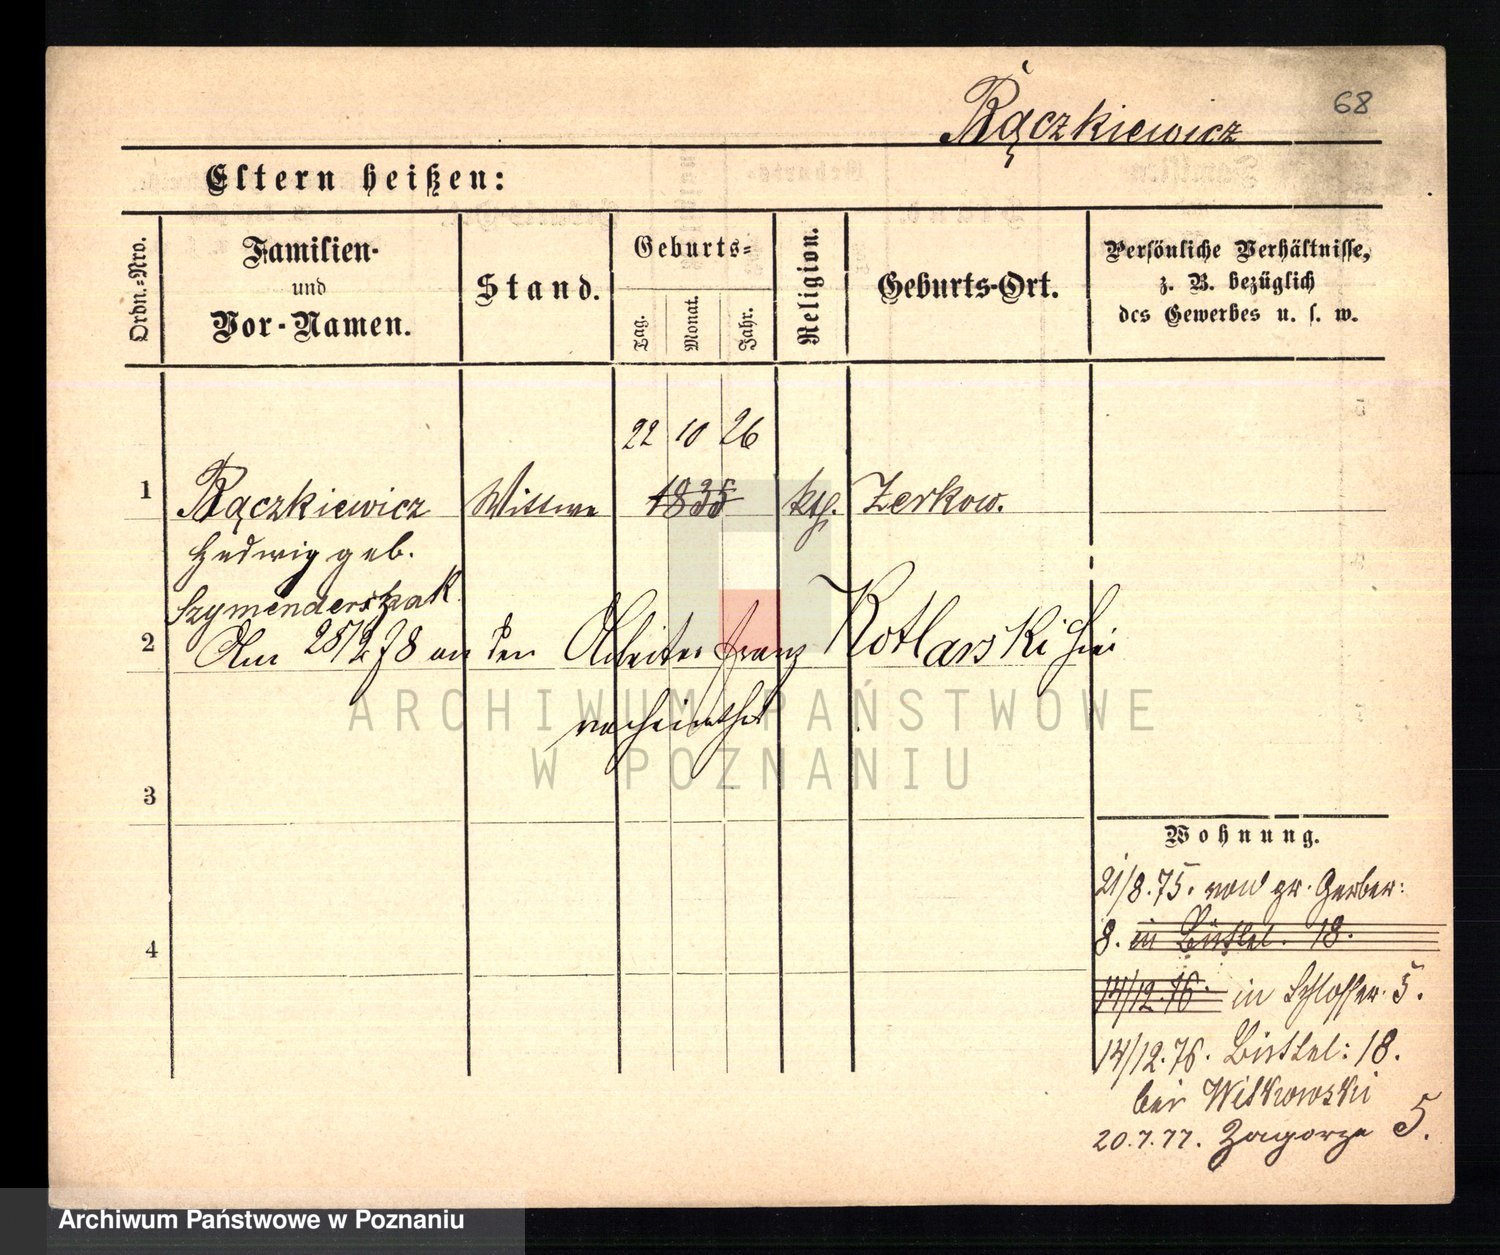 Rączkiewicz
68
Eltern heißen:
Ordn.-Nro.
Familien-
und
Vor-Namen.
Stand.
Geburts-
Tag.
Monat.
Jahr.
Religion.
Geburts-Ort.
Persönliche Verhältnisse,
z. B. bezüglich
des Gewerbes u. s. w.
22 10 26
1 Rączkiewicz Wittwe 1835 kth. Zerkow.
Hedwig geb.
2 Am 25/2 78 an den Arbeiter Franz Kotlarski hier
verheirathet
ARCHIWUM PAŃSTWOWE
W POZNANIU
3
4
Wohnung.
21/8.75. von gr. Gerber:
8. in Büttel. 18.
14/12.76. in Schlosser. 5.
14/12.76. Büttel: 18.
bei Witkowski
20.7.77. Zagorze 5.
Archiwum Państwowe w Poznaniu